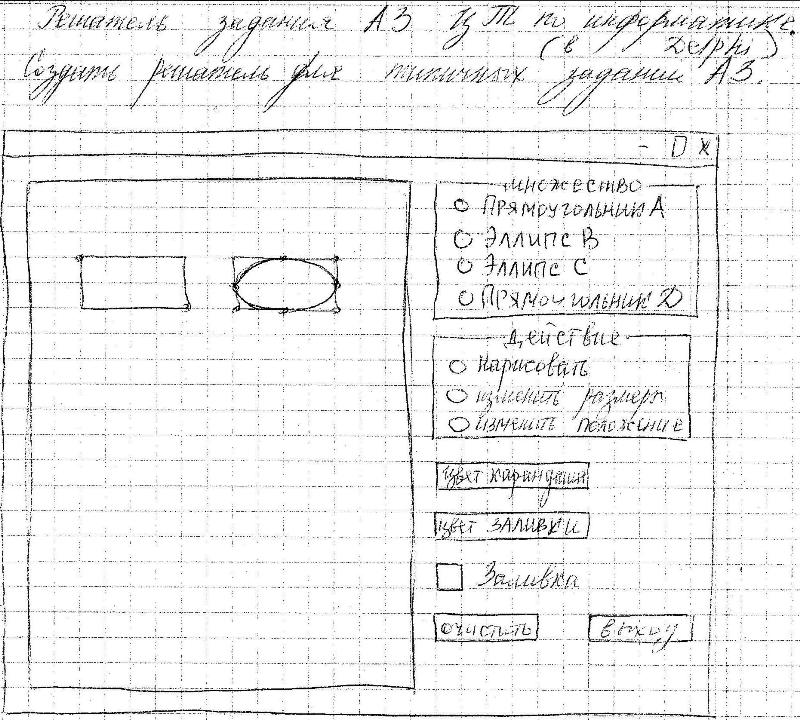 Решатель задания А3 ЦТ по информатике.
(в Delphi)
Создать решатель для типичных заданий А3.
- □ x
множество
Прямоугольник А
Эллипс В
Эллипс С
Прямоугольник D
Действие
Нарисовать
изменить размеры
изменить положение
цвет карандаша
цвет заливки
Заливка
очистить
выход